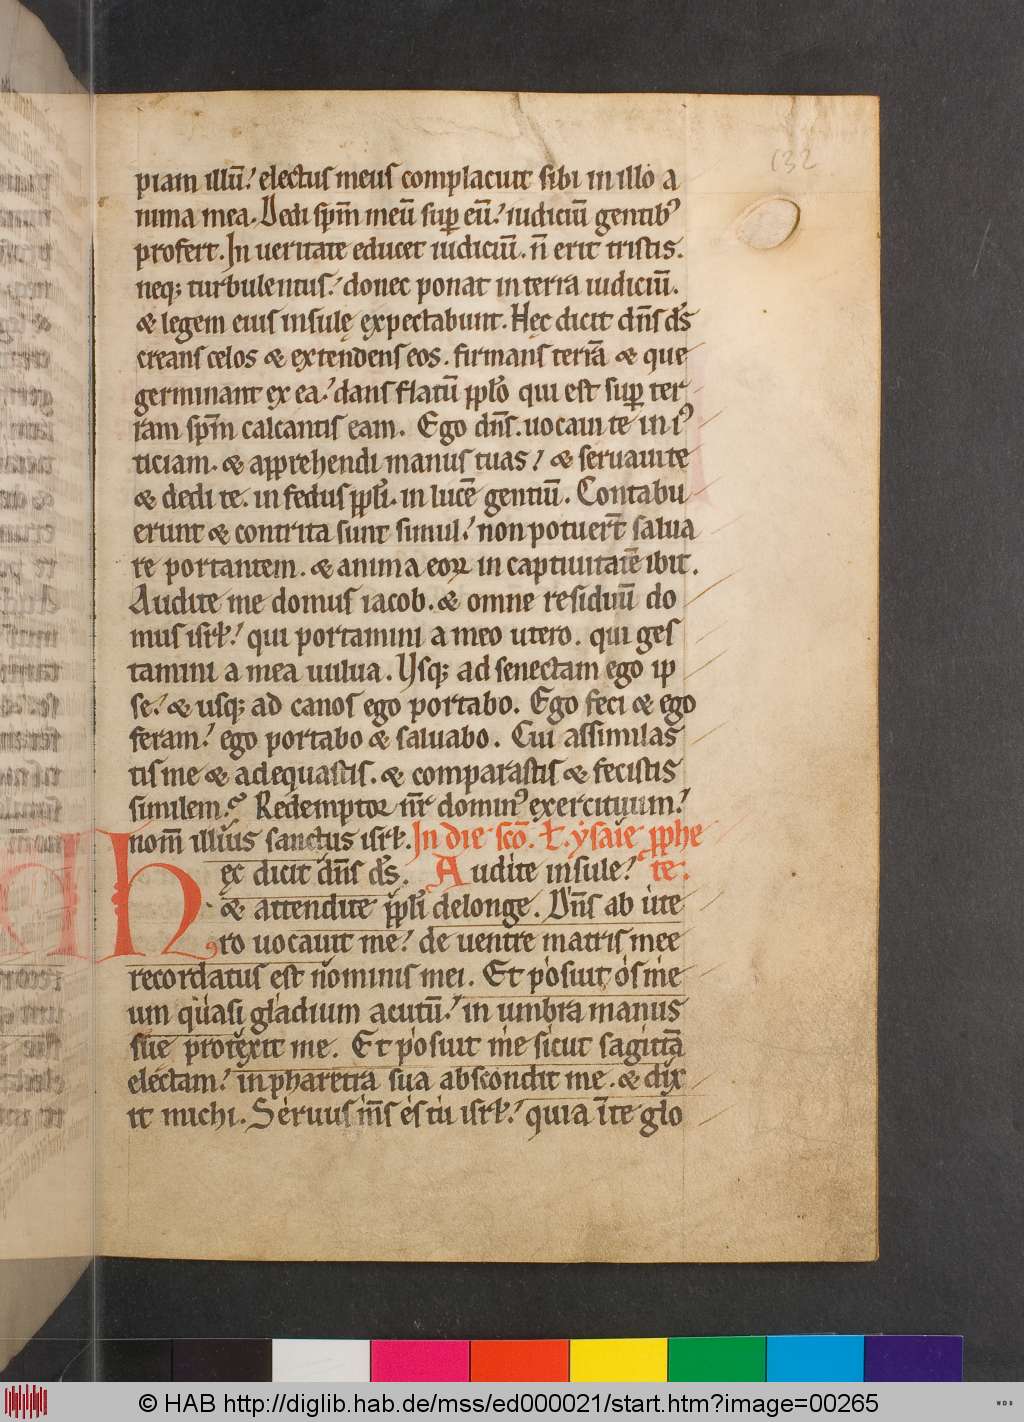 132
piam illū: electus meus complacuit sibi in illo a
nima mea. Dedi spm̄ meū sup eū: iudiciū gentibꝰ
profert. In ueritate educet iudiciū. n̄ erit tristis.
neqꝫ turbulentus: donec ponat in terra iudiciū.
& legem eius insulę expectabunt. Hec dicit dn̄s ds̄
creans celos & extendens eos. firmans terrā & que
germinant ex ea: dans flatū pplo qui est sup ter
ram spm̄ calcantis eam. Ego dn̄s. uocaui te in iꝰ
ticiam. & apprehendi manus tuas: & seruaui te
& dedi te. in fedus ppli. in lucē gentiū. Contabu
erunt & contrita sunt simul: non potuert̄ salua
re portantem. & anima eoꝝ in captiuitatē ibit.
Audite me domus iacob. & omne residuū do
mus isrl̄: qui portamini a meo utero. qui ges
tamini a mea uulua. Usqꝫ ad senectam ego ip
se: & usqꝫ ad canos ego portabo. Ego feci & ego
feram: ego portabo & saluabo. Cui assimilas
tis me & adequastis. & comparastis & fecistis
similem? Redemptor nr̄ dominꝰ exercituum:
nom̄ illius sanctus isrl̄. In die scō. ł. ysaie pphe
Hęc dicit dn̄s ds̄. Audite insule: te.
& attendite ppli delonge. Dn̄s ab ute
ro uocauit me: de uentre matris mee
recordatus est nominis mei. Et posuit os me
um quasi gladium acutū: in umbra manus
sue protexit me. Et posuit me sicut sagittā
electam: in pharetra sua abscondit me. & dix
it michi. Seruus ms̄ es tu isrl̄: quia īte glo
© HAB http://diglib.hab.de/mss/ed000021/start.htm?image=00265